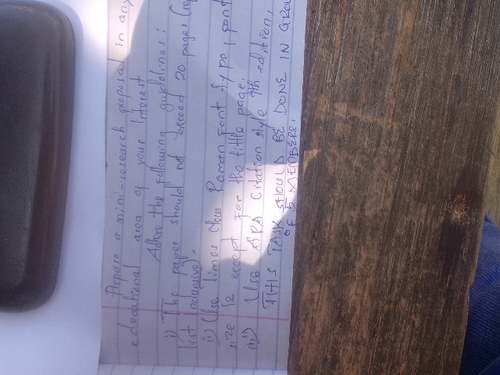 Prepare a mini-research proposal in any
educational area of your interest
Adhere the following guidelines:
i) The paper should not exceed 20 pages (
list inclusive).
ii) Use Times New Roman font type, font
size 12 except for the tittle page.
iii) Use APA citation style 7th edition.
THIS TASK SHOULD BE DONE IN GROU
OF 5 MEMBERS.